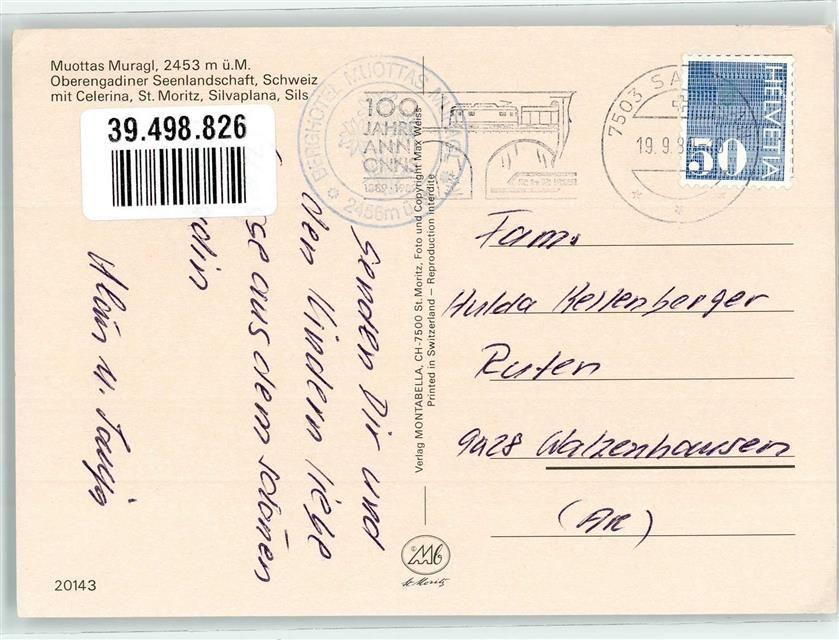 Muottas Muragl, 2453 m ü.M.
Oberengadiner Seenlandschaft, Schweiz
mit Celerina, St. Moritz, Silvaplana, Sils
39.498.826
BERGHOTEL MUOTTAS MURAGL
2456m ü.
100
JAHRE
ANNI
ONNS
1889-1989
7503 SA
19.9.8
HELVETIA
50
senden Dir und
den Kindern liebe
aus dem schönen
Alois u. Tanja
Verlag MONTABELLA, CH-7500 St. Moritz, Foto und Copyright Max Weiss
Printed in Switzerland – Reproduction interdite
Fam.
Hulda Kellenberger
Ruten
9428 Walzenhausen
(AR)
Mb
St. Moritz
20143